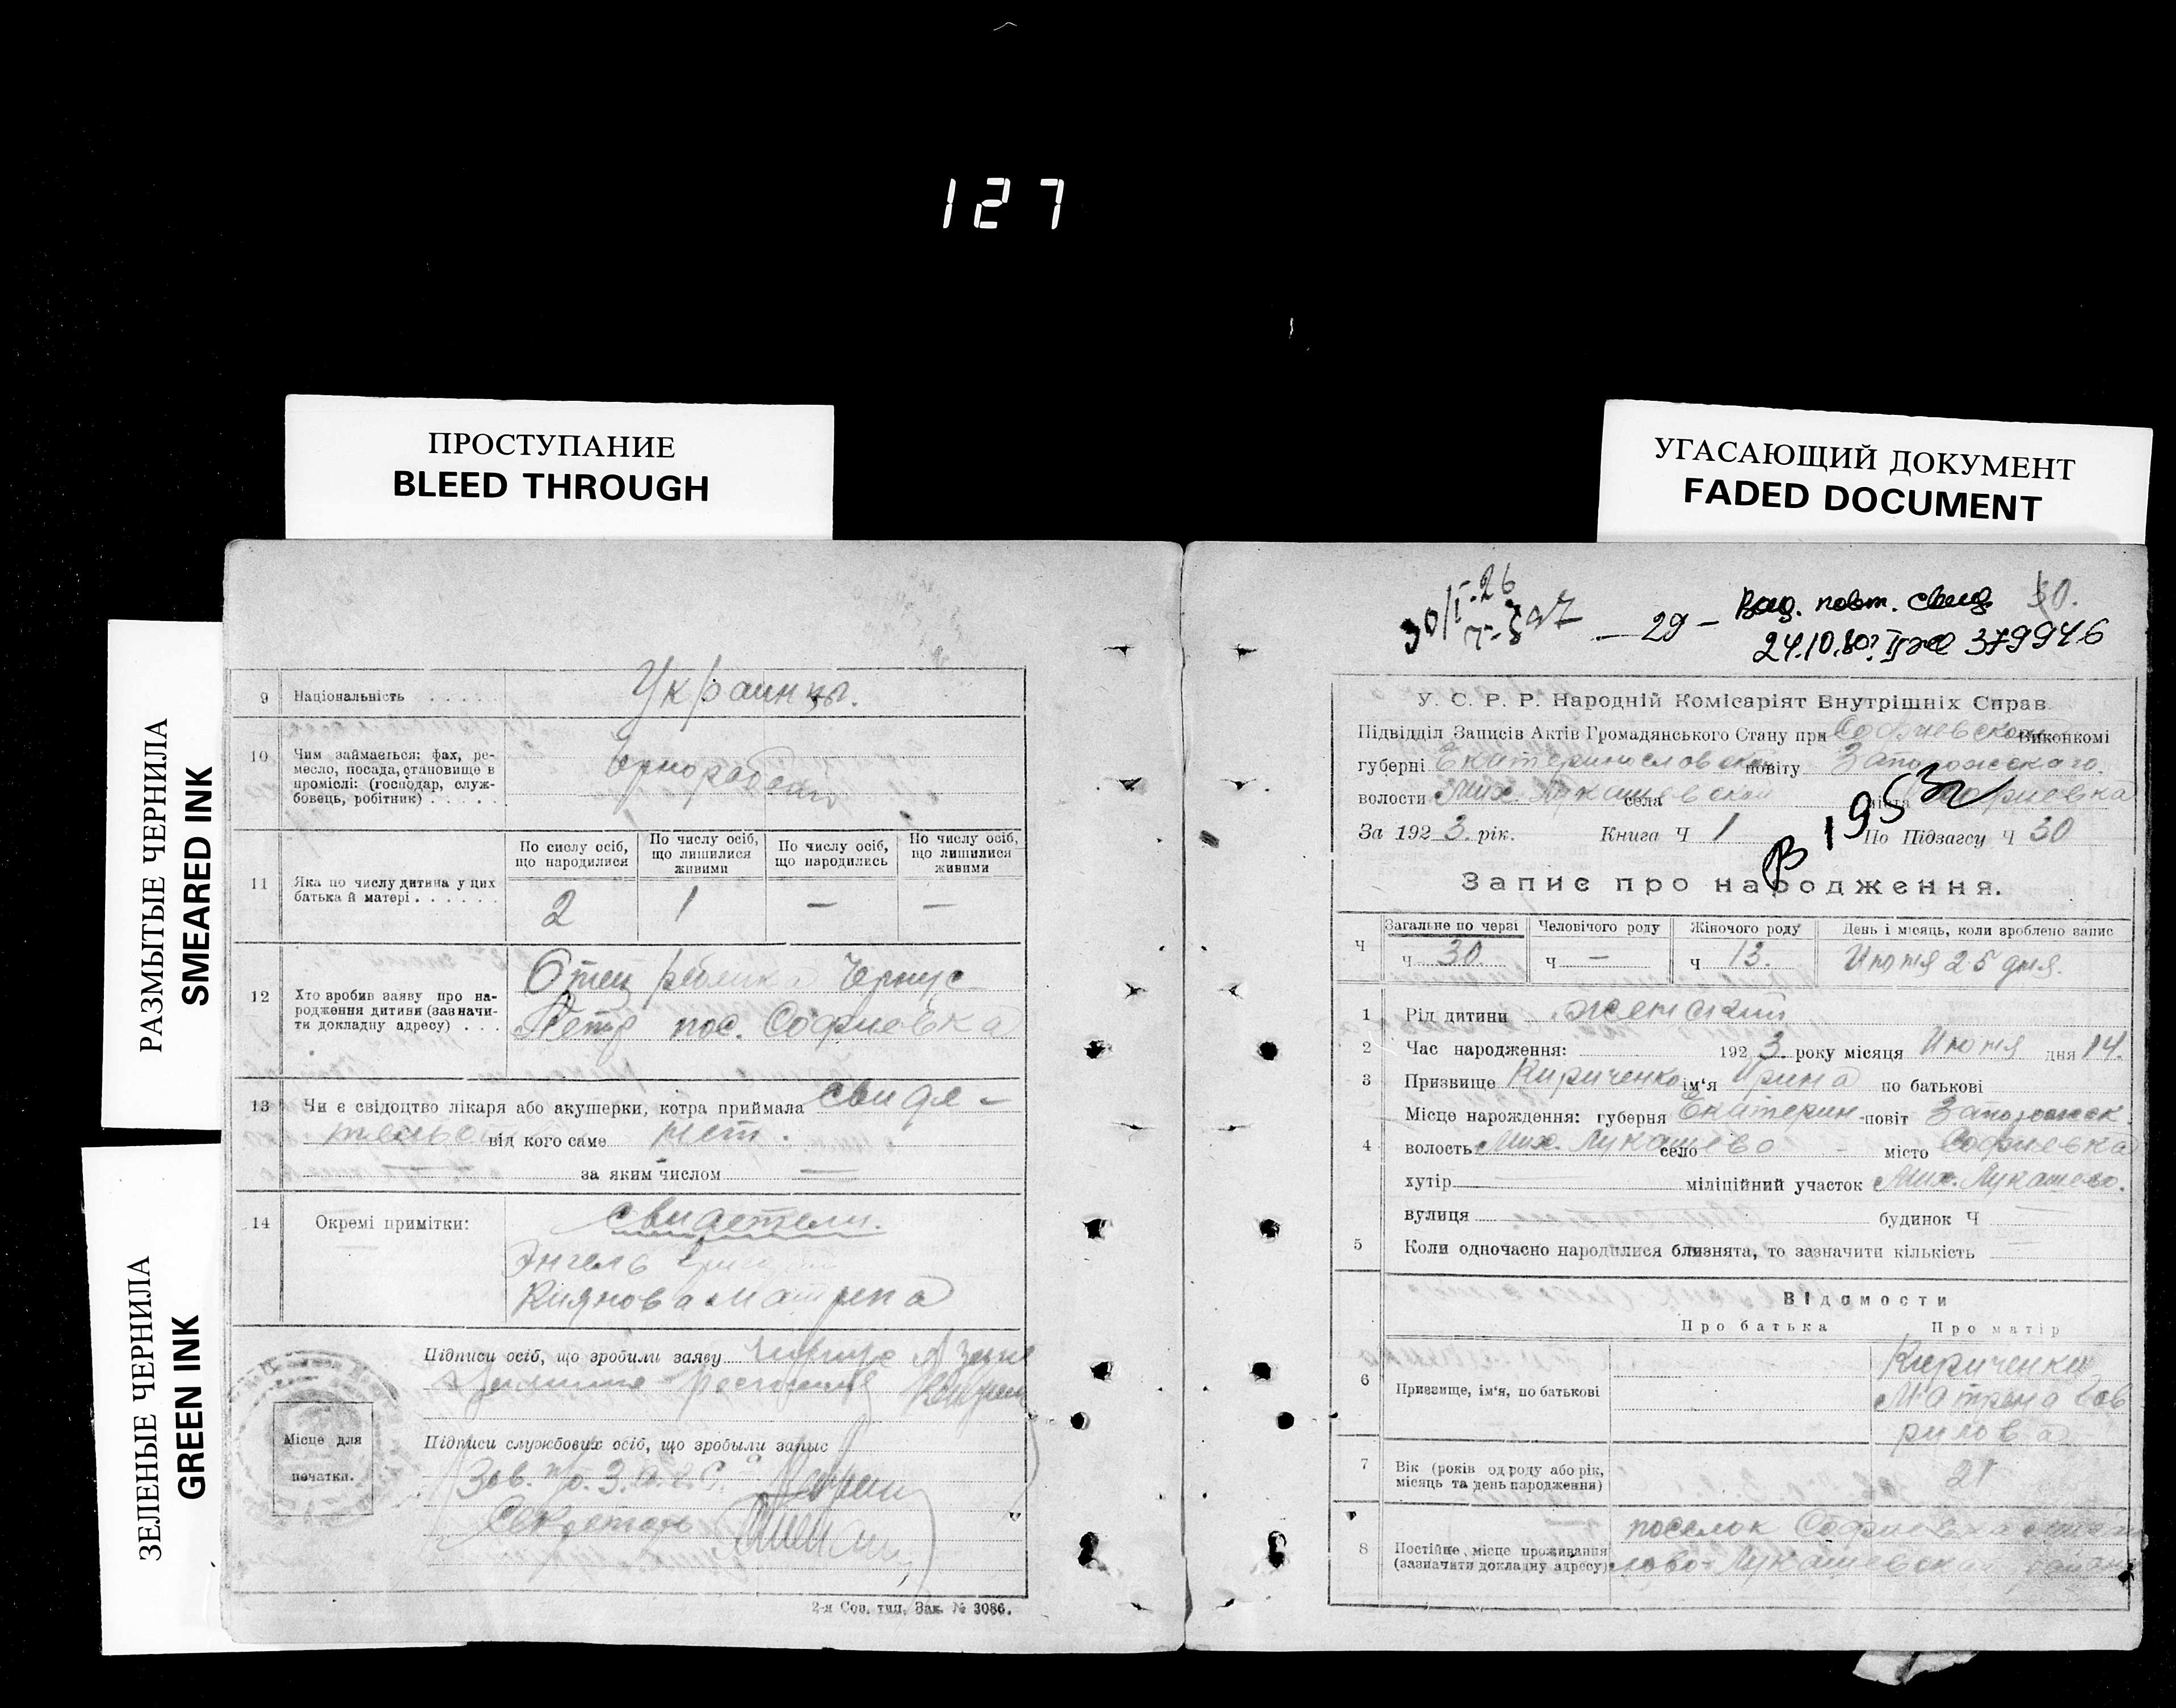 127
ПРОСТУПАНИЕ
BLEED THROUGH
УГАСАЮЩИЙ ДОКУМЕНТ
FADED DOCUMENT
РАЗМЫТЫЕ ЧЕРНИЛА
SMEARED INK
ЗЕЛЕНЫЕ ЧЕРНИЛА
GREEN INK
9 Національність . . . . . Украинцы.
10 Чим займається: фах, ре-
месло, посада, становище в
промислі: (господар, служ-
бовець, робітник) . . . . .
По сислу осіб, що народилися
По числу осіб, що лишилися живими
По числу осіб, що народились
По числу осіб, що лишилися живими
11 Яка по числу дитина у цих
батька й матері . . . . . . 2 1 — —
12 Хто зробив заяву про на-
родження дитини (зазначи-
ти докладну адресу) . . .
Отец
Петр пос. Софиевка
13 Чи є свідоцтво лікаря або акушерки, котра приймала свиде-
від кого саме нет.
за яким числом —
14 Окремі примітки: свидетели.
Матрена
Підписи осіб, що зробили заяву
Підписи службових осіб, що зробыли запыс
Зав. З.А.Г.С.
Секретарь
Місце для
печатки.
2-я Сов. тип. Зак. № 3086.
30/I-26
— 29 — повт. свид 30.
24.10.80г. 379946
У. С. Р. Р. Народній Комісаріят Внутрішніх Справ
Підвідділ Записів Актів Громадянського Стану при Софиевском Виконкомі
губерні Екатеринославской повіту Запорожскаго.
волости Мих. Лукашевской села міста Софиевка
За 1923. рік. Книга Ч 1 По Підзагсу Ч 30
Запис про народження.
Загальне по черзі Человічого роду Жіночого роду День і місяць, коли зроблено запис
Ч ч 30. ч — ч 13. Июня 25 дня.
1 Рід дитини женский
2 Час народження: 1923. року місяця Июня дня 14.
3 Призвище Кириченко ім‘я Ирина по батькові
Місце нарождення: губерня Екатерин повіт Запорожск
4 волость Мих. Лукашево село — місто Софиевка
хутір — міліційний участок Мих. Лукашево.
вулиця будинок Ч —
5 Коли одночасно народилися близнята, то зазначити кількість —
Відомости
Про батька Про матір
6 Призвище, ім‘я, по батькові
Кириченко
Матрена Гав
рилова
7 Вік (років од роду або рік,
місяць та день народження) 21
8 Постійне місце проживання
(зазначити докладну адресу)
поселок Софиевка
лово-Лукашевской